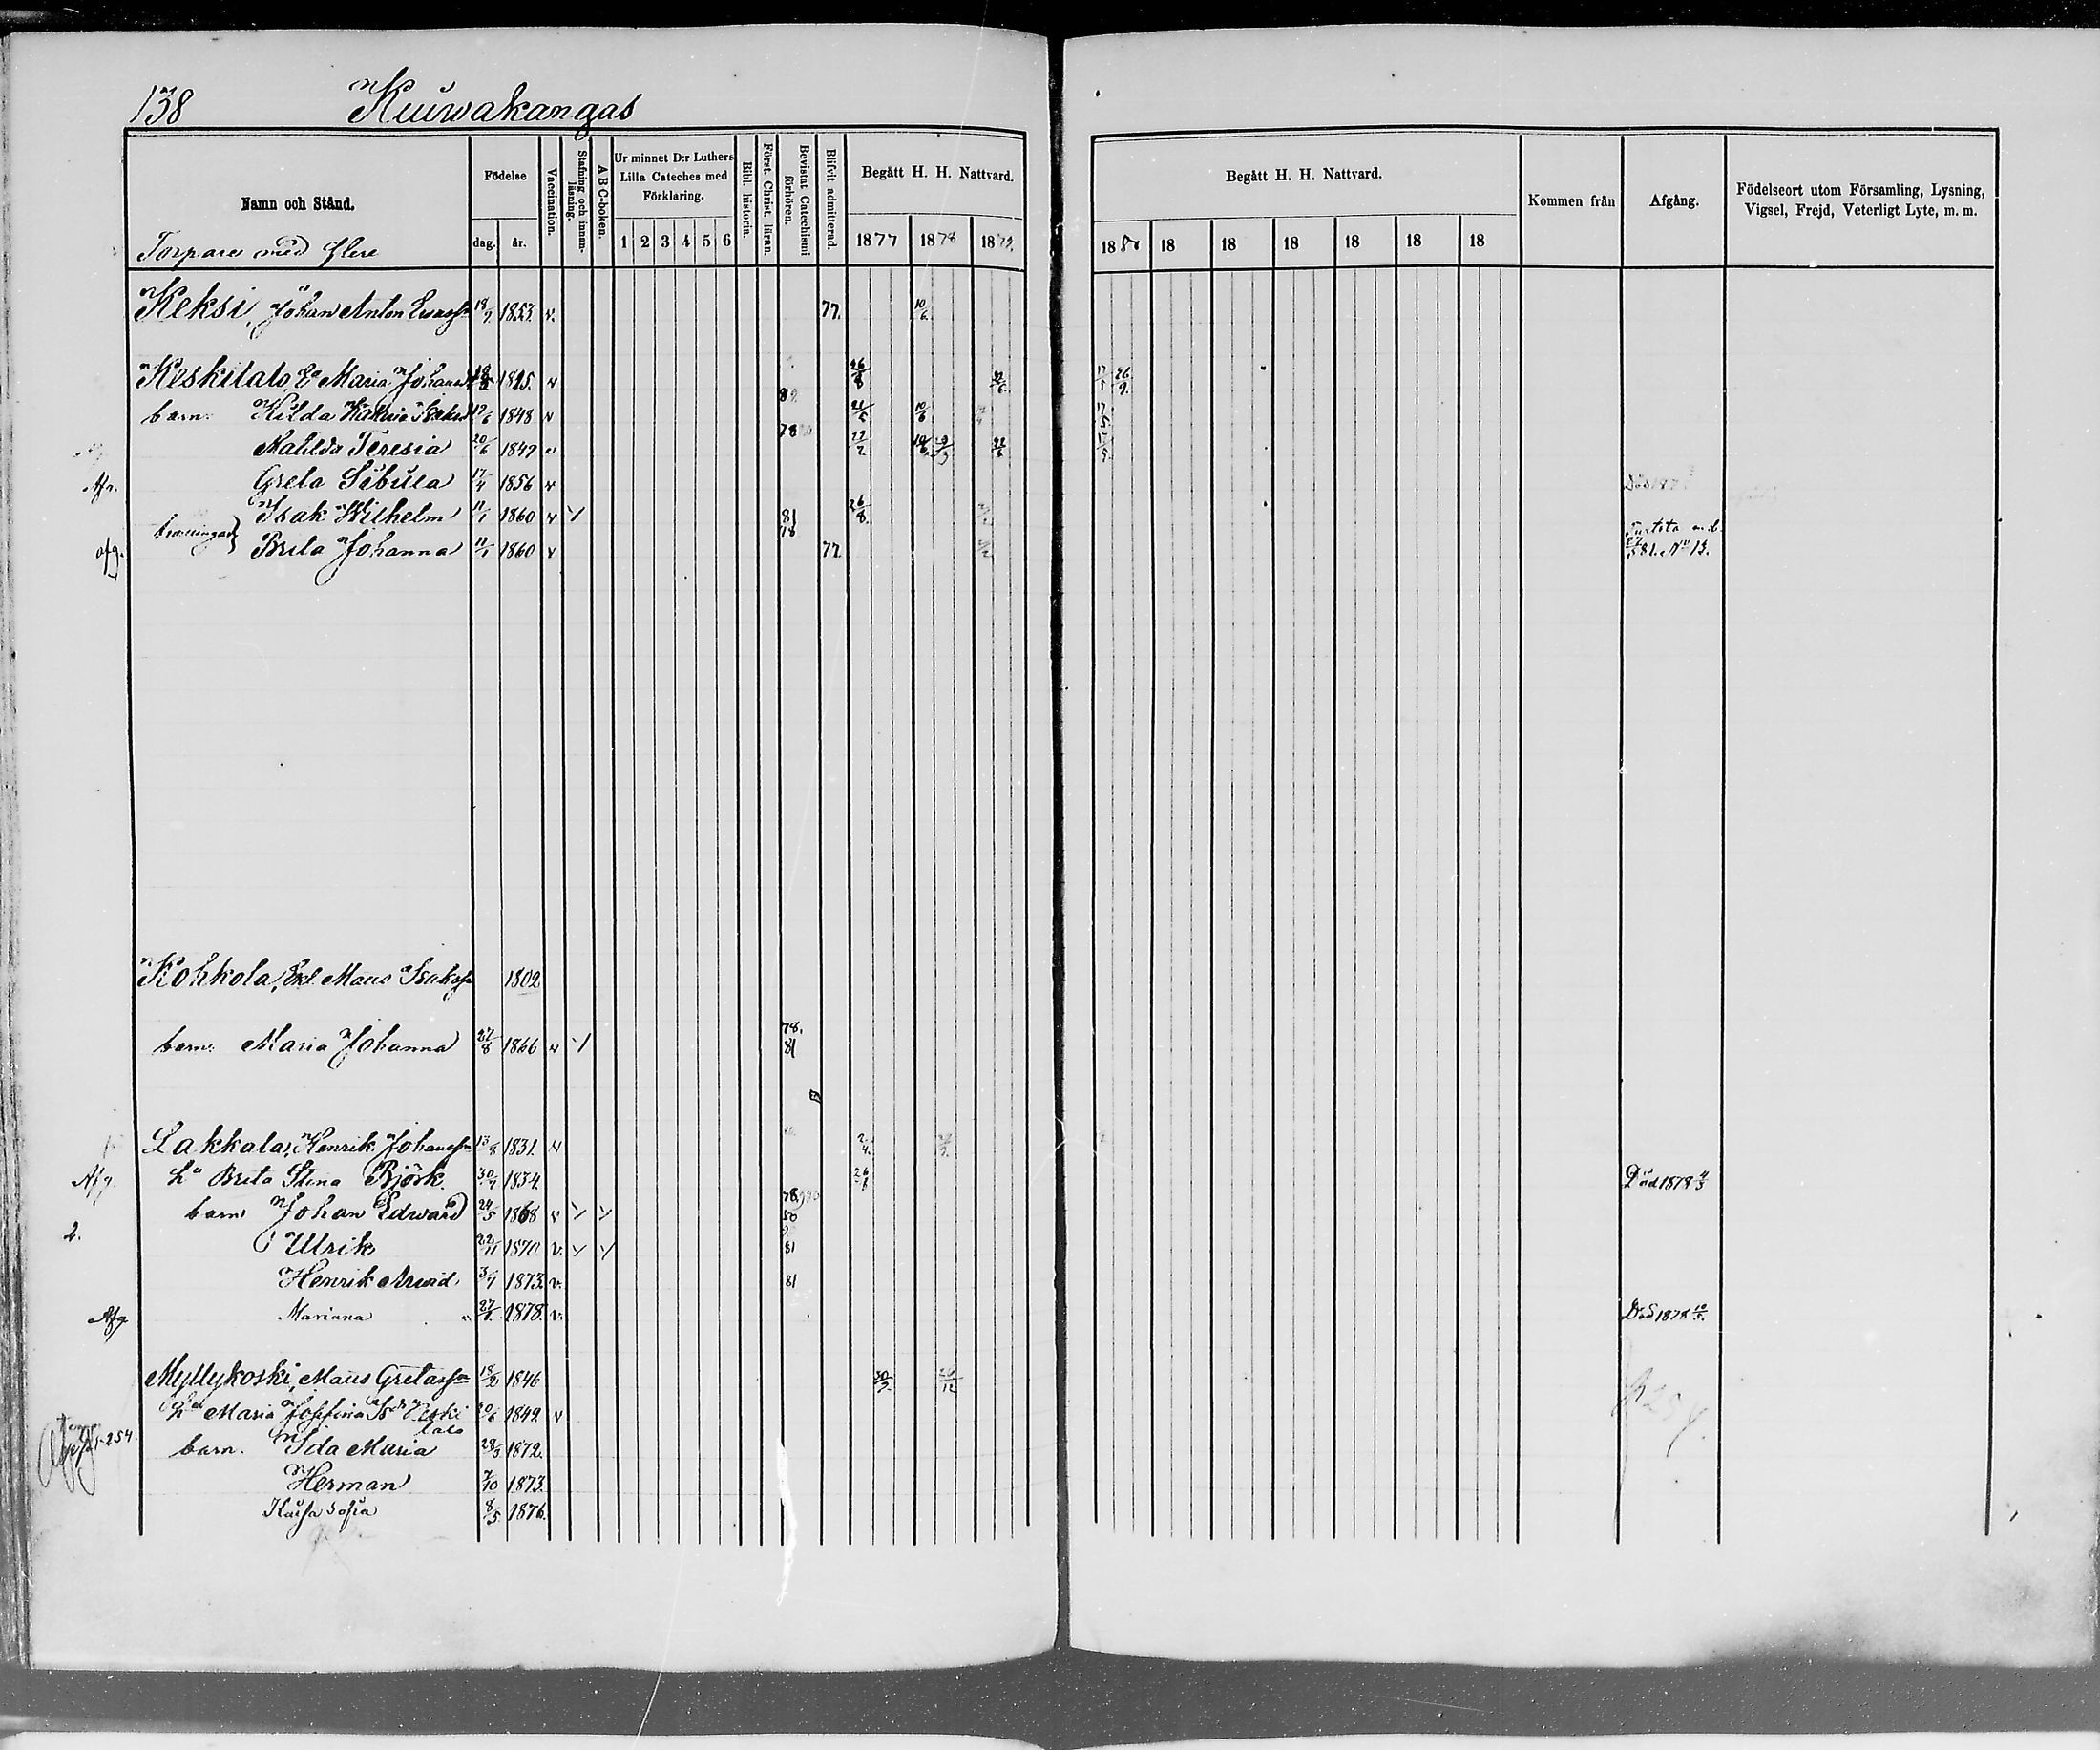 138 Kuiwakangas
Namn och Stånd.
Födelse
dag. år.
Vaccination.
Stafning och innan-läsning.
A B C-boken.
Ur minnet D:r Luthers
Lilla Cateches med
Förklaring.
1 2 3 4 5 6
Bibl. historia.
Först. Christ. läran.
Bevistat Catechismi förhören.
Blifvit admitterad.
Begått H. H. Nattvard.
1877 1878 1879.
Begått H. H. Nattvard.
1880 18 18 18 18 18 18
Kommen från
Afgång.
Födelseort utom Församling, Lysning,
Vigsel, Frejd, Veterligt Lyte, m. m.
Torpare med flere
Keksi, Johan Anton 18/9 1853. v. 77. 10/6.
Keskitalo, Ea Maria Johans 1815. v 26/8 22/6. 17/5 26/9.
82
barn. Hilda Isaksd 17/6 1848 v 21/5 10/6 17/5
78
Matilda Teresia 20/6 1849 v 22/6
Afg. Greta Sibula 17/4 1856 v
Isak Wilhelm 11/1 1860 v y 81 26/8.
78
afg. Brita Johanna 11/1 1860 v 77. 81. No 13.
Kohkola, Enkl. Maus Isaksson 1802
78.
barn: Maria Johanna 27/8 1866 v y 81
Lakkala, Henrik Johansson 13/8 1831. v 2/4.
Afg. hu Brita Stina Björk. 30/7 1834. 26/8 Död 1878 4/5
78
barn Johan Edward 24/5 1868 v y y 80
2. Ulrik 22/11 1870. v. y y 81
Henrik Arvid 3/7 1873. v. 81
Afg Mariana 27/4. 1878. v. Död 1878 10/5.
Myllykoski, Maus Gretasson 18/2 1846 30/9. 26/12
hu Maria Josefina Isdr Keski
talo 20/6 1849. v
254
Afg 254.
barn. Ida Maria 28/3 1872.
Herman 7/10 1873.
Kaisa Sofia 8/5. 1876.